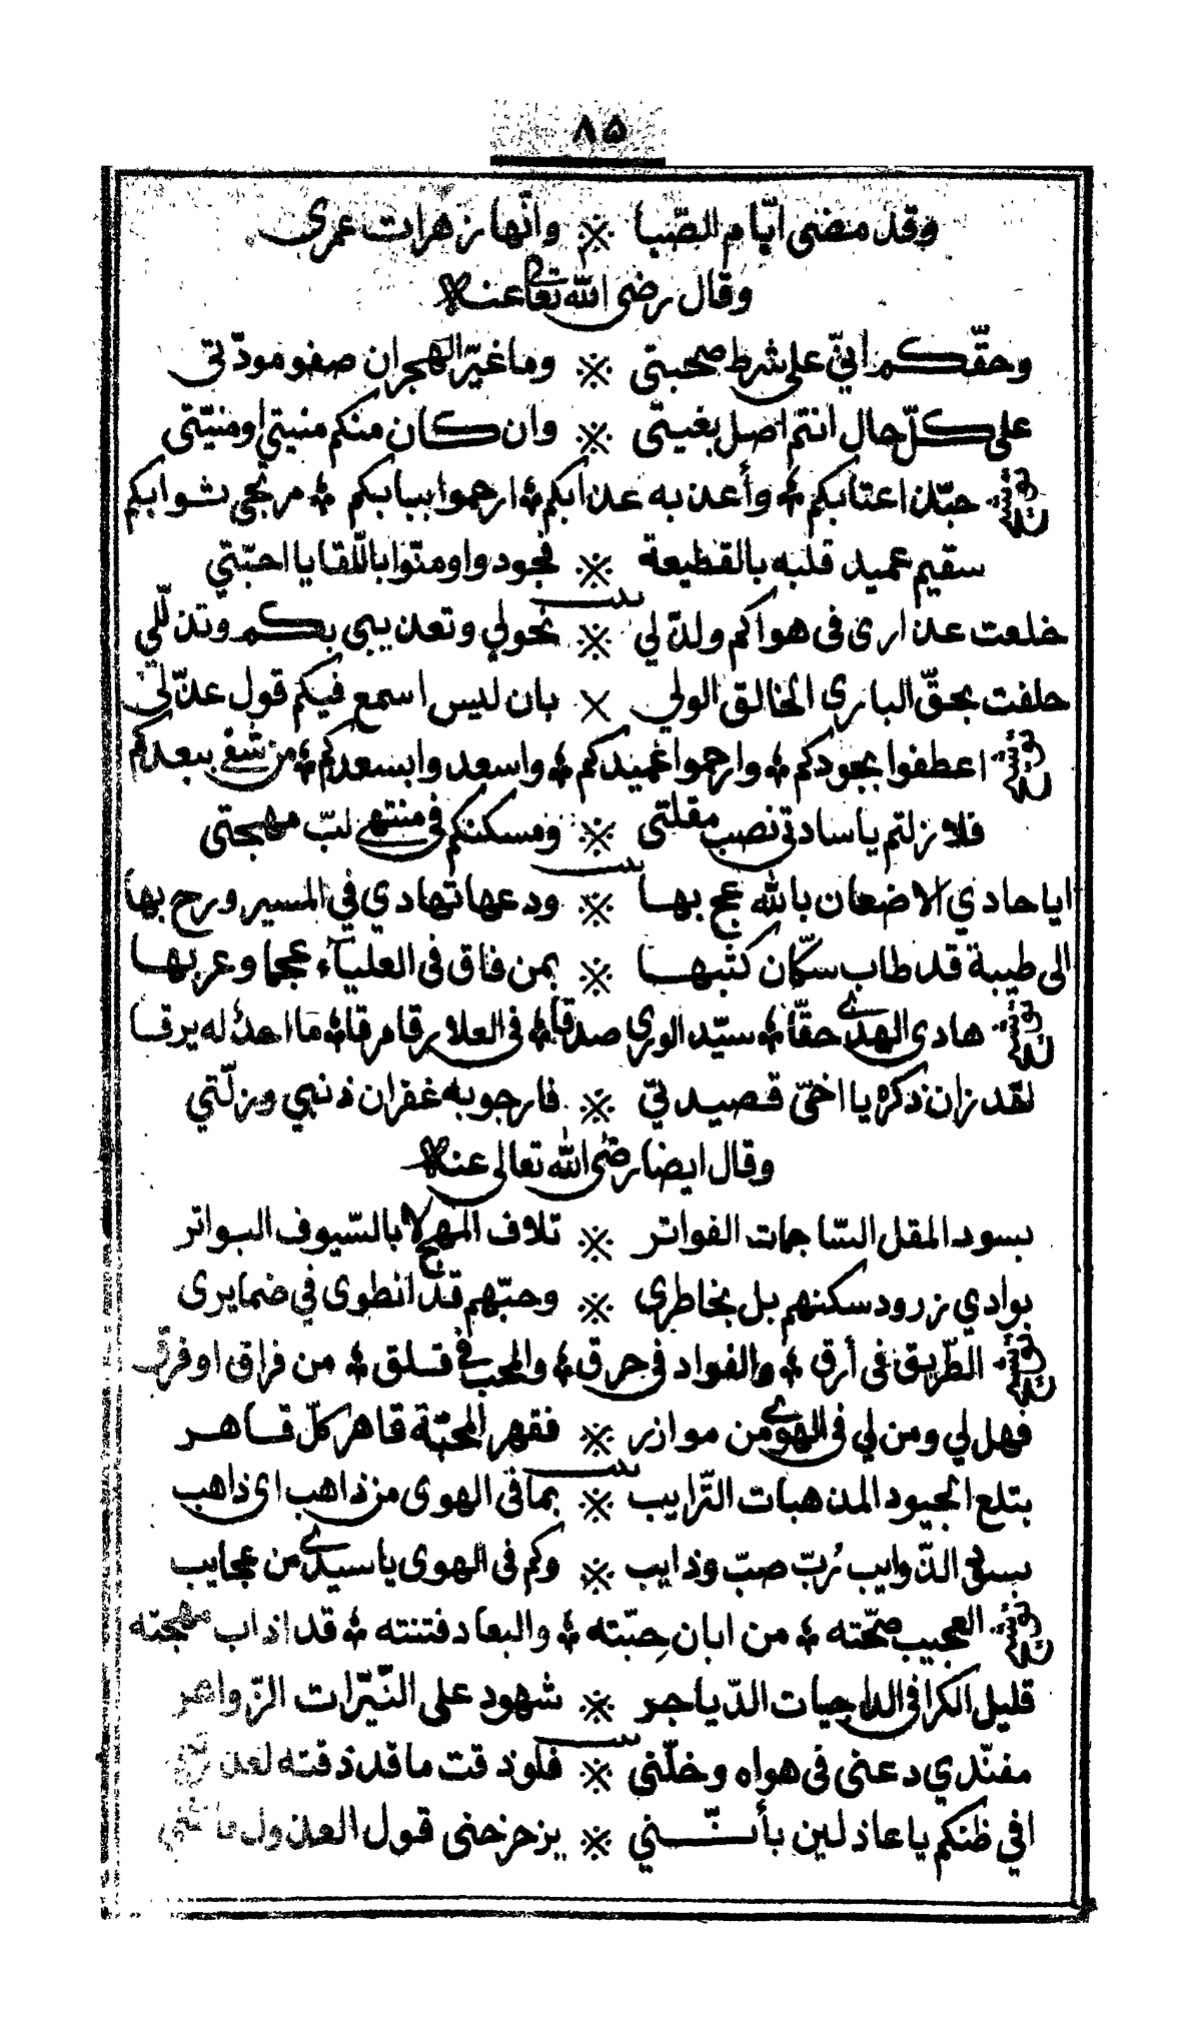 ٨٥
وقد مضى ايّام الصّبا ※ وانّها زهرات عمري
وقال رضى الله تعالى عنه
وحقّكم انيّ على شرط صحبتي ※ وما غيّر الهجران صفو مودّتي
على كلّ حال انتم اصل بغيتي ※ وان كان منكم منيتي او منيّتي
توشيح حبّذا اعتابكم ۞ وأعذبه عذابكم ۞ ارحموا ببابكم ۞ مرتجى ثوابكم
سقيم عميد قلبه بالقطيعة ※ فجودوا ومنّوا باللّقا يا احبّتي
بيت
خلعت عذاري فى هواكم ولذّ لي ※ نحولي وتعذيبى بكم وتذلّلي
حلفت بحقّ الباري الخالق الولي ※ بان ليس اسمع فيكم قول عذّلي
توشيح اعطفوا بجودكم ۞ وارحموا عميدكم ۞ واسعدوا بسعدكم ۞ من شقى ببعدكم
فلا زلتم يا سادتي نصب مقلتي ※ ومسكنكم في منتهى لبّ مهجتي
بيت
ايا حادي الاضعان بالله عج بها ※ ودعها تهادي في المسير ورح بها
الى طيبة قد طاب سكّان كثبها ※ بمن فاق فى العلياء عجما وعربها
توشيح هادى الهدى حقّا ۞ سيّد الورى صدقا ۞ فى العلا رقا مرقا ۞ ما احد له يرقا
لقد زان ذكره يا اخىّ قصيدتي ※ فارجو به غفران ذنبي وزلّتي
وقال ايضا رضى الله تعالى عنه
بسود المقل السّاجمات الفواتر ※ تلاف المهج لا بالسّيوف البواتر
بوادي زرود سكنهم بل بخاطري ※ وحبّهم قد انطوى في ضمايرى
توشيح الطّريق فى أرق ۞ والفواد فى حرق ۞ والمحب في قلق ۞ من فراق او فرق
فهل لي ومن لي فى الهوى من موازر ※ فقهر المحبّة قاهر كلّ قاهر
بيت
بتلع الجيود المذهبات التّرايب ※ بما فى الهوى من ذاهب اى ذاهب
بسقى الذّوايب رُبّ صبّ وذايب ※ وكم فى الهوى يا سيدي من عجايب
توشيح العجيب صحّته ۞ من ابان حِبّته ۞ والبعاد فتنته ۞ قد اذاب مهجته
قليل الكرا فى الداجيات الدّياجر ※ شهود على النّيّرات الزّواهر
بيت
مفنّدي دعنى فى هواه وخلّني ※ فلو ذقت ما قد ذقته
افي ظنكم يا عاذلين بأنّني ※ يزحزحنى قول العذول